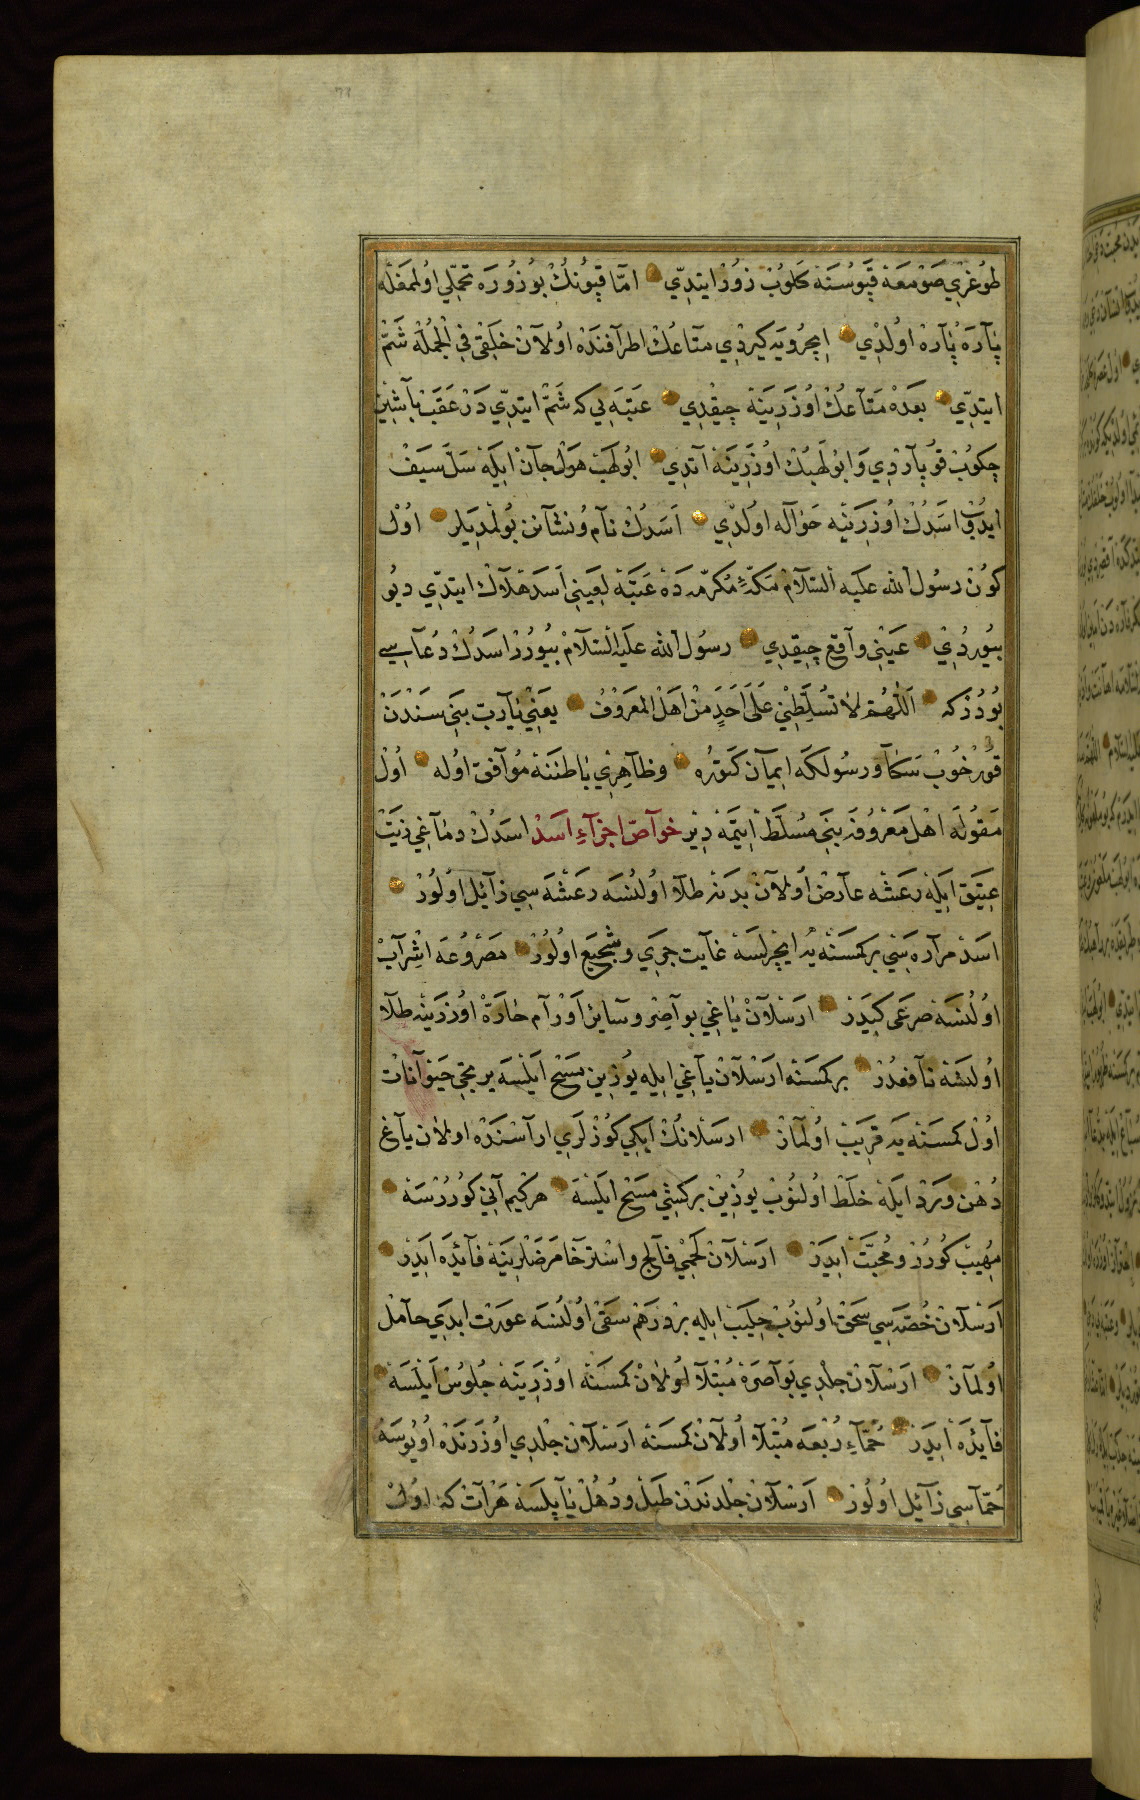 طوُغرِي صَوْمَعَهٔ قَپَوسُنَه كَلوُبْ زوُرْ ايتدِّي امّا قپوُنكْ بوُ زوُرَه تحمّلِي اوُلمغله
پٰارَهْ پٰارَهْ اوُلْدِي اِيچروُيَه كيردْي متٰاعُكْ اطرافندَهْ اوُلاٰنْ خلقِي فِي الْجُمْلَه شَمّ
ايتدِّي بعدَهْ مَتٰاعُكْ اوُزَرِينَهْ چيقْدِي عَتبَه يِي كه شَمّ ايتدِّي دَرْعقَبْ بٰاشِينْ
چكوُبْ قوُپٰاردْي وَ ابوُلهَبُكْ اوُزَرِينَهْ آتدِي ابوُلهَبْ هَوْل جٰانْ ايلَهْ سَلّ سَيفْ
ايدُوبْ اسَدُكْ اوُزرِينَه حَوٰاله اوُلدِّي اَسَدُكْ نٰام وُنشٰانِن بُولمدِيلر اوُلْ
كوُنْ رسوُل الله عليه السّلاٰمْ مَكّۀ مُكرّمه دَهْ عَتبَهٔ لعِينِي اَسَدْ هَلاٰكْ ايتدِّي ديوُ
بيُوردُيْ عَينِي وٰاقع چِيقدِي رسوُل الله عليه السّلاٰمْ بيُوُرْرْ اسَدُكْ دُعٰاسِي
بُودُرْ كه اَللّٰهُمّ لاٰ تُسَلِّطْنِي عَلَى اَحَدٍ مِنْ اَهْلِ المعَرُوفْ يعَنِي يٰارَبّ بَنِي سَنْدَنْ
قوُرخُوبْ سَكٰا و رسوُلكَه ايمٰان كَتوُرَه وظٰاهِرِي بٰاطننَهْ مُوٰافق اوُله اوُلْ
مَقوُلَه اهْل مَعْروُفه بَنِي مُسَلّطْ ايتمَه دِيْر خوٰاصّ اجزٰاءِ اسَدْ اسَدُكْ دمٰاغِي زيَتْ
عِتيق ايلَهْ رعَشَه عٰارضْ اوُلاٰنْ بدَنه طلاٰ اوُلنُسَه رعَشَه سِي زٰائِل اوُلُورْ
اسَدْ مرٰارَه سِني بركمسَنَه يَه ايچرلسَهْ غٰايت جرِي و شجِيع اوُلوُرْ مَصْروُعَه اشِرٰابْ
اوُلُنسَه صرعَى كيدَرْ ارَسْلاٰنْ يٰاغِي بوٰاصِر و سٰائرْ اَوْرٰامِ حٰارّهْ اوُزرَينَه طلاٰ
اوُلنسَه نٰافعدُرْ بركمسَنَه ارَسْلاٰنْ يٰاغِي ايلَه يوُزِينْ مَسَحْ ايلَسَه يرتجِي حَيَوٰانٰاتْ
اوُلْ كمسَنَه يَه قرِيبْ اوُلمٰازْ ارسَلاٰنُكْ ايكِي كوُزلَرِي ارٰاسنْدَهْ اوُلاٰن يٰاغ
دُهْن وَرَدْ ايلَهْ خلَطْ اوُلنوُبْ يوُزِينْ بركشِي مَسَحْ ايلَسَهْ هركيم آنِي كوُررْسَهْ
مِهُيبْ كوُرُرْ و محُبّتْ ايدَرْ ارَسْلاٰنْ لَحْمِي فٰالج و استرخٰا مرَضلرِينَهْ فٰائِدَه ايدَرْ
اَرَسْلاٰنْ خُصَيه سِي سَحقْ اوُلنوُبْ حليبْ ايله بر دِرَهمْ سَقي اوُلنُسَه عورَتْ ابدِي حٰامْل
اوُلمٰازْ ارَسْلاٰنْ جلدِي بَوٰاصَرهْ مُبْتلاٰ اوُلاٰنْ كمسَنَه اوُزَرِينَهْ جُلوُسْ ايلَسَهْ
فٰائِدَه ايدَرْ حُمّٰاءِ رُبْعَه مُبْتلاٰ اوُلاٰنْ كمسَنَه ارَسْلاٰن جْلدِي اوُزَرندَهْ اوُيوُسَهْ
حُمّٰاسِي زٰائِل اوُلُورْ اَرَسْلاٰن جلْدندَنْ طبَلْ ودُهُلْ يٰاپِلسَهْ هَرْ آتْ كه اوُلْ